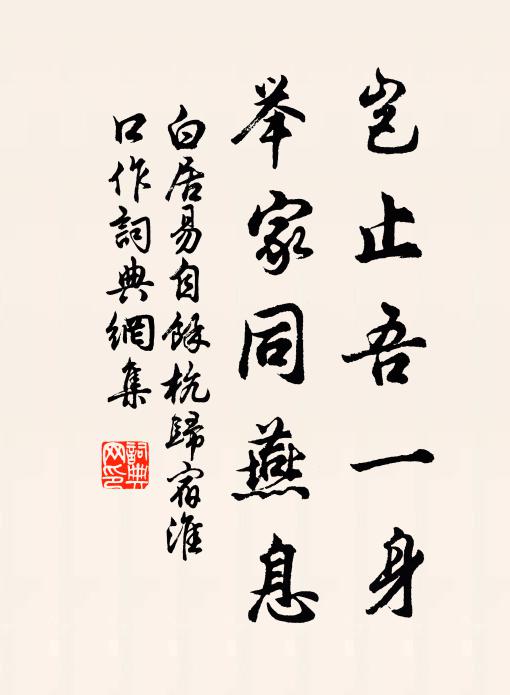 岂止吾一身
举家同燕息
白居易自餘杭歸宿淮
口作詞典網集
詞典
网印